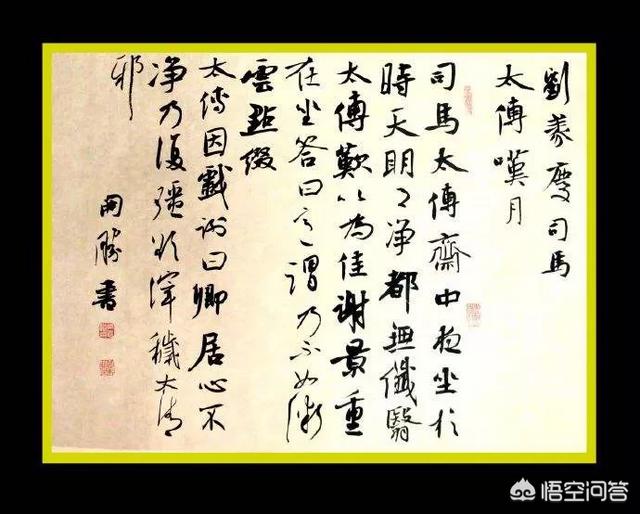 劉義慶司馬
太傅嘆月
司馬太傅齋中夜坐於
時天明月净都無纖翳
太傅歎以為佳謝景重
在坐答曰意謂乃不如微
雲點綴
太傅因戲謝曰卿居心不
净乃復彊欲滓穢太清
邪
勝書
悟空问答